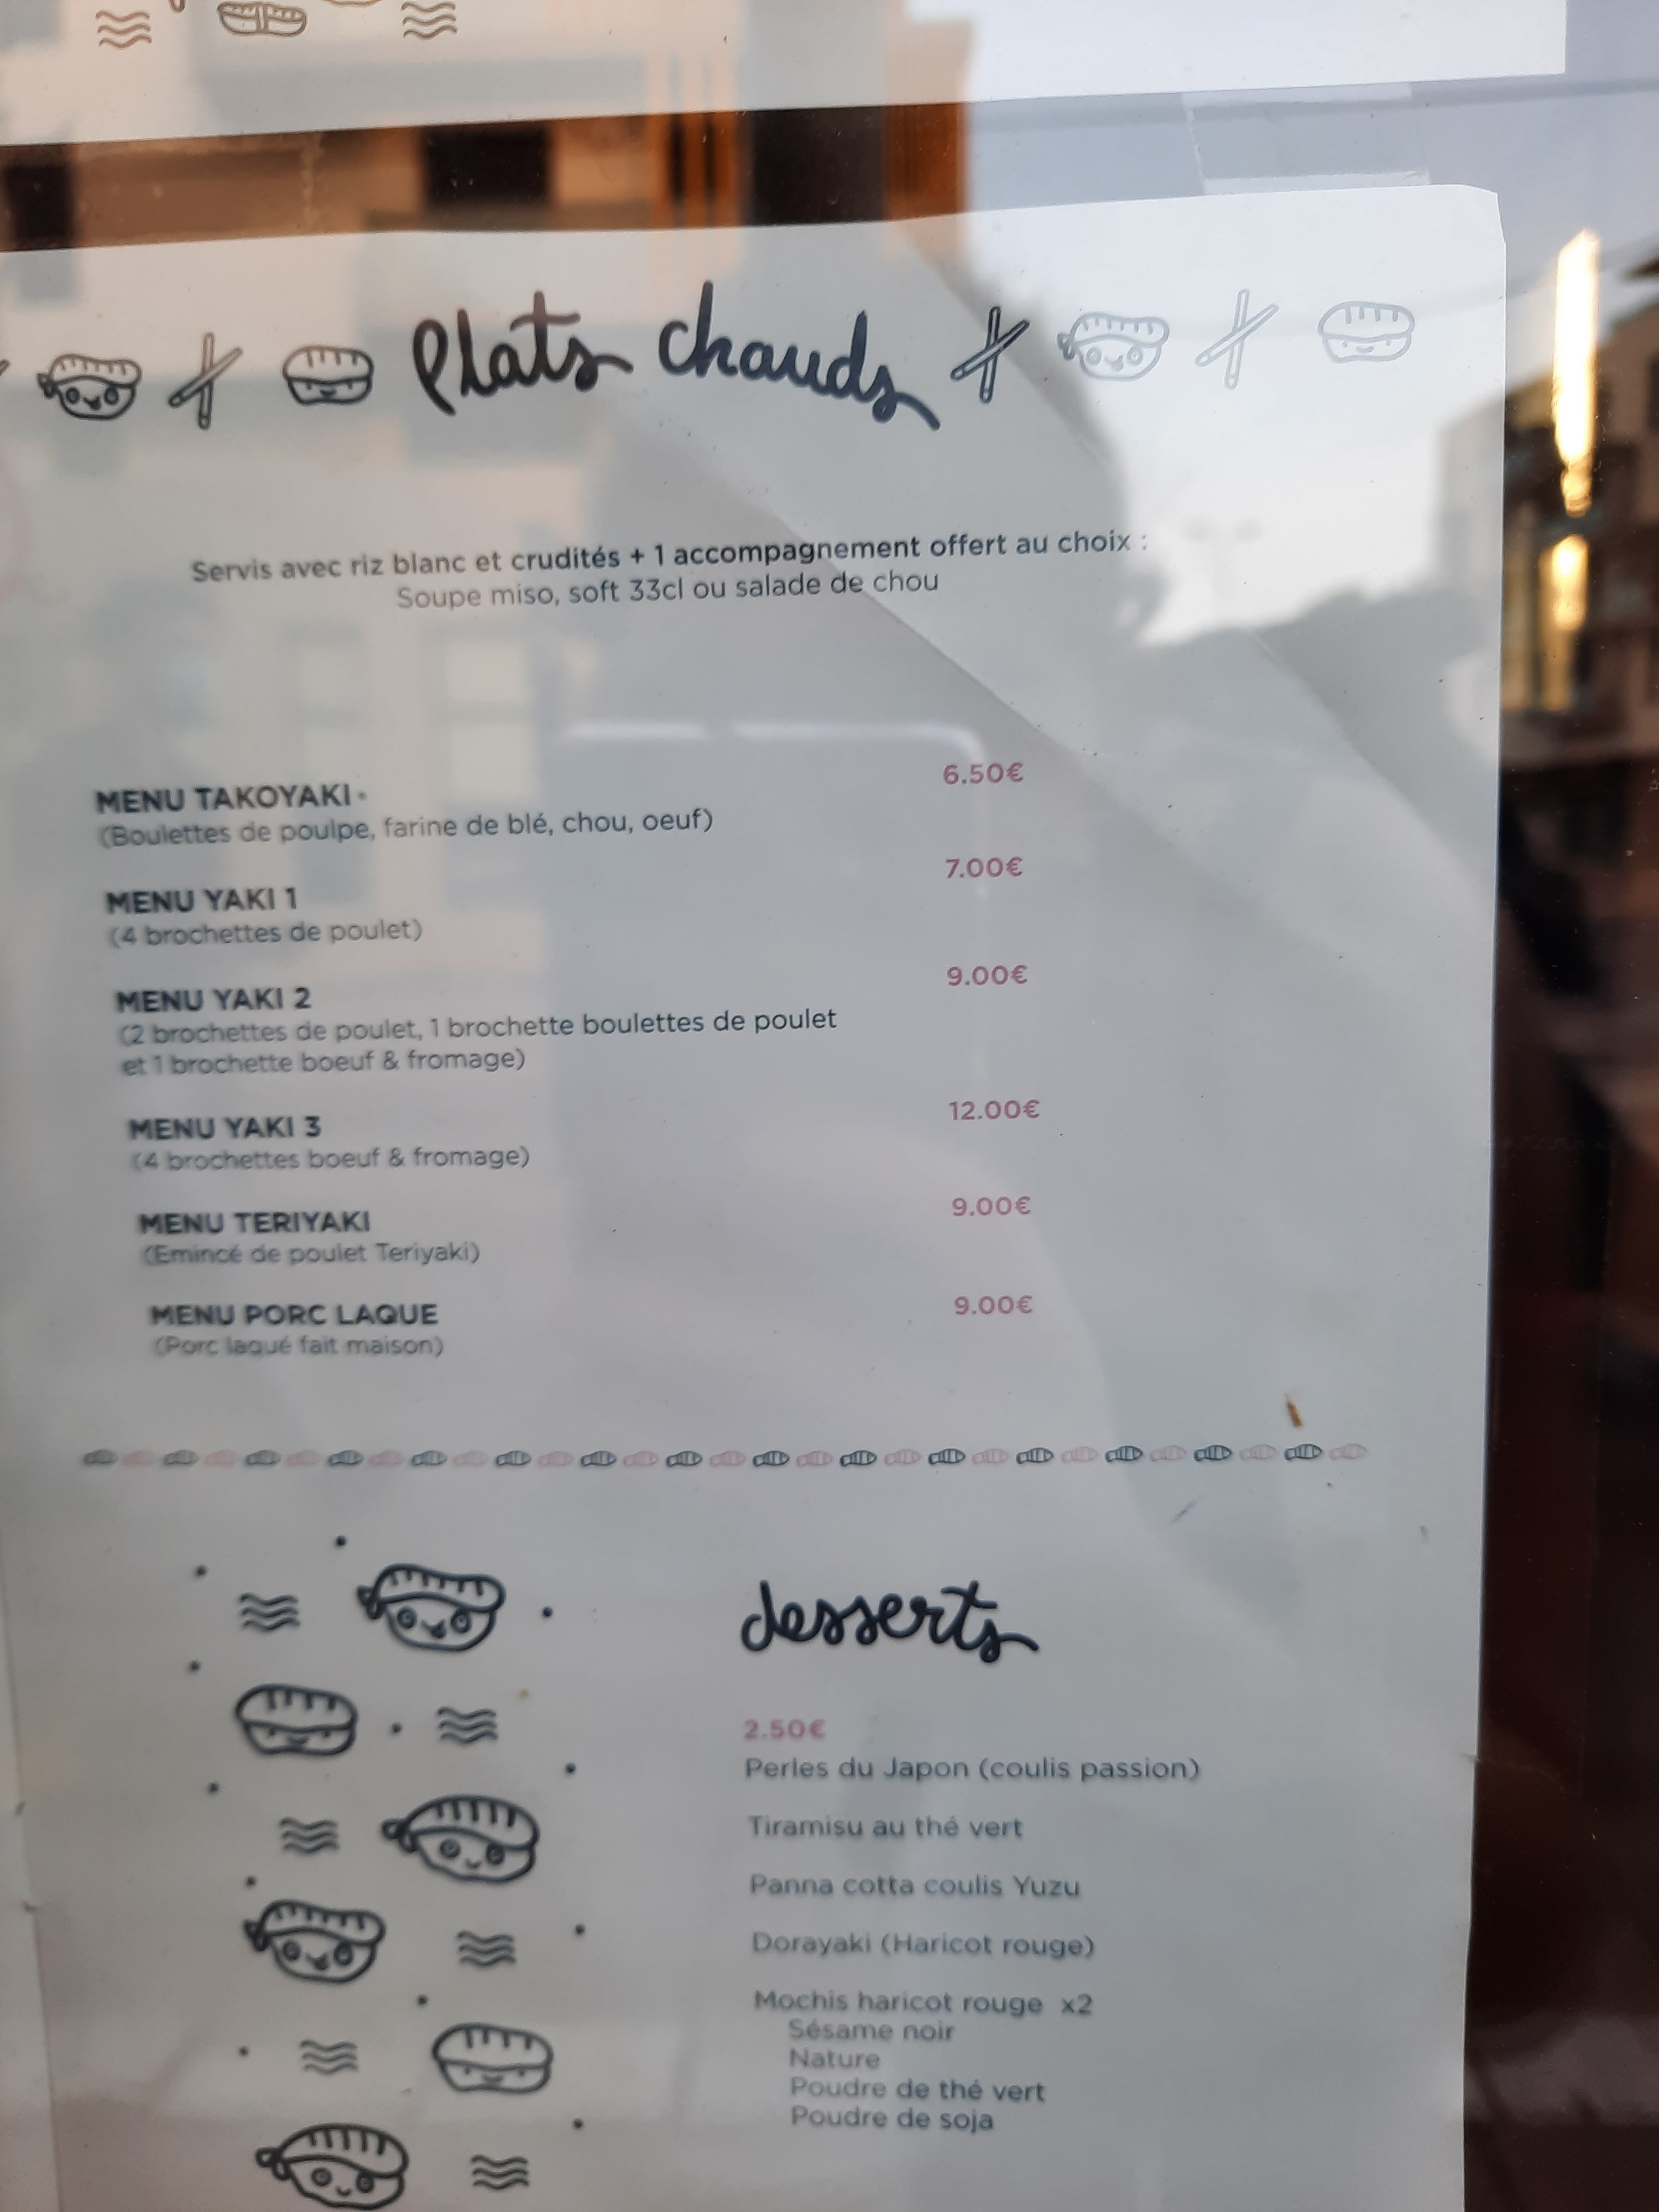 Plats chauds
Servis avec riz blanc et crudités + 1 accompagnement offert au choix :
Soupe miso, soft 33cl ou salade de chou
MENU TAKOYAKI 6.50€
(Boulettes de poulpe, farine de blé, chou, oeuf)
MENU YAKI 1 7.00€
(4 brochettes de poulet)
MENU YAKI 2 9.00€
(2 brochettes de poulet, 1 brochette boulettes de poulet
et 1 brochette boeuf & fromage)
MENU YAKI 3 12.00€
(4 brochettes boeuf & fromage)
MENU TERIYAKI 9.00€
(Emincé de poulet Teriyaki)
MENU PORC LAQUE 9.00€
(Porc laqué fait maison)
desserts
2.50€
Perles du Japon (coulis passion)
Tiramisu au thé vert
Panna cotta coulis Yuzu
Dorayaki (Haricot rouge)
Mochis haricot rouge x2
Sésame noir
Nature
Poudre de thé vert
Poudre de soja